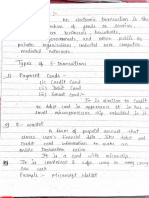 An electronic transaction is the
of goods or services,
between businesses, households,
governments, and other public or
private organisations, conducted over computer
mediated networks.
Types of E-transactions
1) Payment Cards :-
(i) Credit Card
(ii) Debit Card
(iii) Smart Card :-
It is similar to Credit
or debit card in appearance it has a
small microprocessor chip embedded in it
2) E-wallet
A form of prepaid account that
stores user's financial data, like debit
and credit card information to make an
online transaction easier.
It is a card with microchip.
It is convenient & safe way to carry
cash
Example - Microsoft Wallet